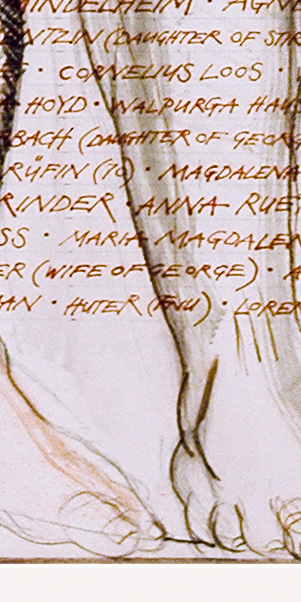 MINDELHEIM · AGN
NTZIN (DAUGHTER OF STR
· CORNELIUS LOOS ·
HOYD · WALPURGA HAU
BACH (DAUGHTER OF GEORG
RÜFIN (70) · MAGDALENA
RINDER · ANNA RUE
SS · MARIA MAGDALEN
ER (WIFE OF GEORGE) ·
AN · HUTER (FNU) · LOREN